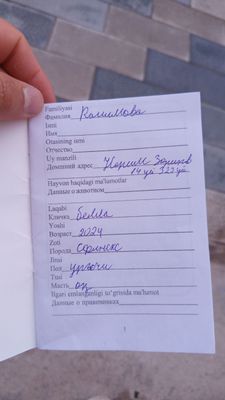 Familiyasi
Фамилия Рахимова
Ismi
Имя
Otasining ismi
Отчество
Uy manzili
Домашний адрес
Hayvon haqidagi ma'lumotlar
Данные о животном
Laqabi
Кличка белла
Yoshi
Возраст 2024
Zoti
Порода Сфинкс
Jinsi
Пол урғочи
Tusi
Масть оқ
Ilgari emlanganligi to'g'risida ma'lumot
Данные о прививках
1